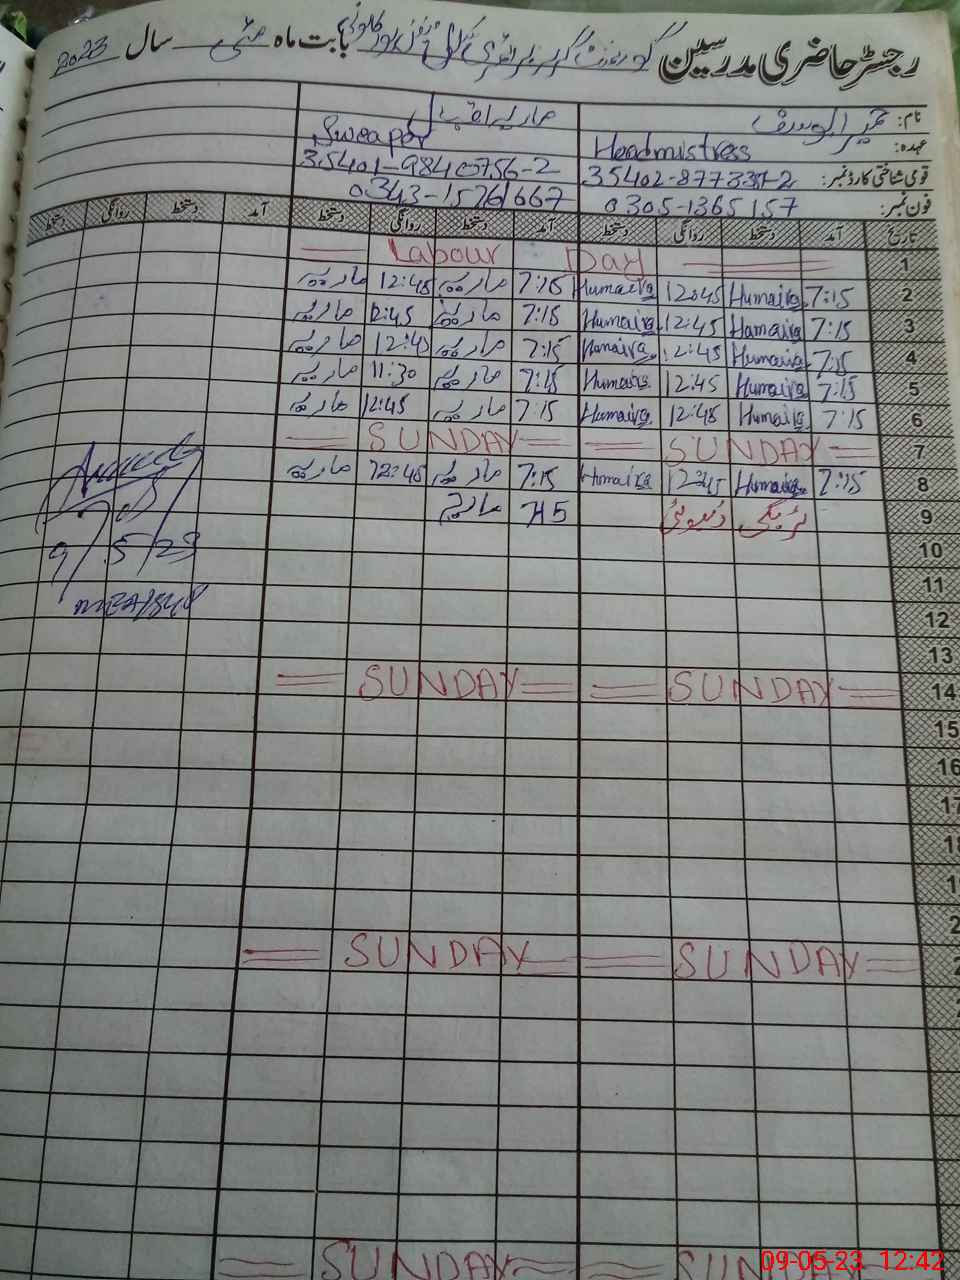 رجسٹر حاضری مدرسین گورنمنٹ گرلز پرائمری سکول بابت ماہ مئی سال 2023
نام: حمیرا یوسف ماریہ اقبال
عہدہ: Headmistress Sweaper
قومی شناختی کارڈ نمبر: 35401-9840756-2
فون نمبر: 0305-1365157 0343-15761667
تاریخ آمد دستخط روانگی دستخط آمد دستخط روانگی دستخط آمد دستخط روانگی دستخط
1 Labour Day
2 7:15 Humaira 12:45 Humaira 7:15 ماریہ 12:45 ماریہ
3 7:15 Humaira 12:45 Humaira 7:15 ماریہ 12:45 ماریہ
4 7:15 Humaira 12:45 Humaira 7:15 ماریہ 12:45 ماریہ
5 7:15 Humaira 12:45 Humaira 7:15 ماریہ 11:30 ماریہ
6 7:15 Humaira 12:45 Humaira 7:15 ماریہ 12:45 ماریہ
7 SUNDAY SUNDAY
8 7:15 Humaira 12:45 Humaira 7:15 ماریہ 12:45 ماریہ
9 ڈیوٹی 7:15 ماریہ
10
11
12
13
14 SUNDAY SUNDAY
15
16
17
SUNDAY SUNDAY
SUNDAY SUN
9/5/23
09-05-23 12:42